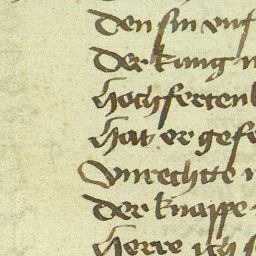 den sin vuf
der kung
hochferten
hat er gef
Vnrechtte
der knappe
herre ich